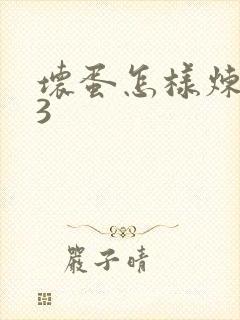 壞蛋怎樣煉
3
嚴子晴